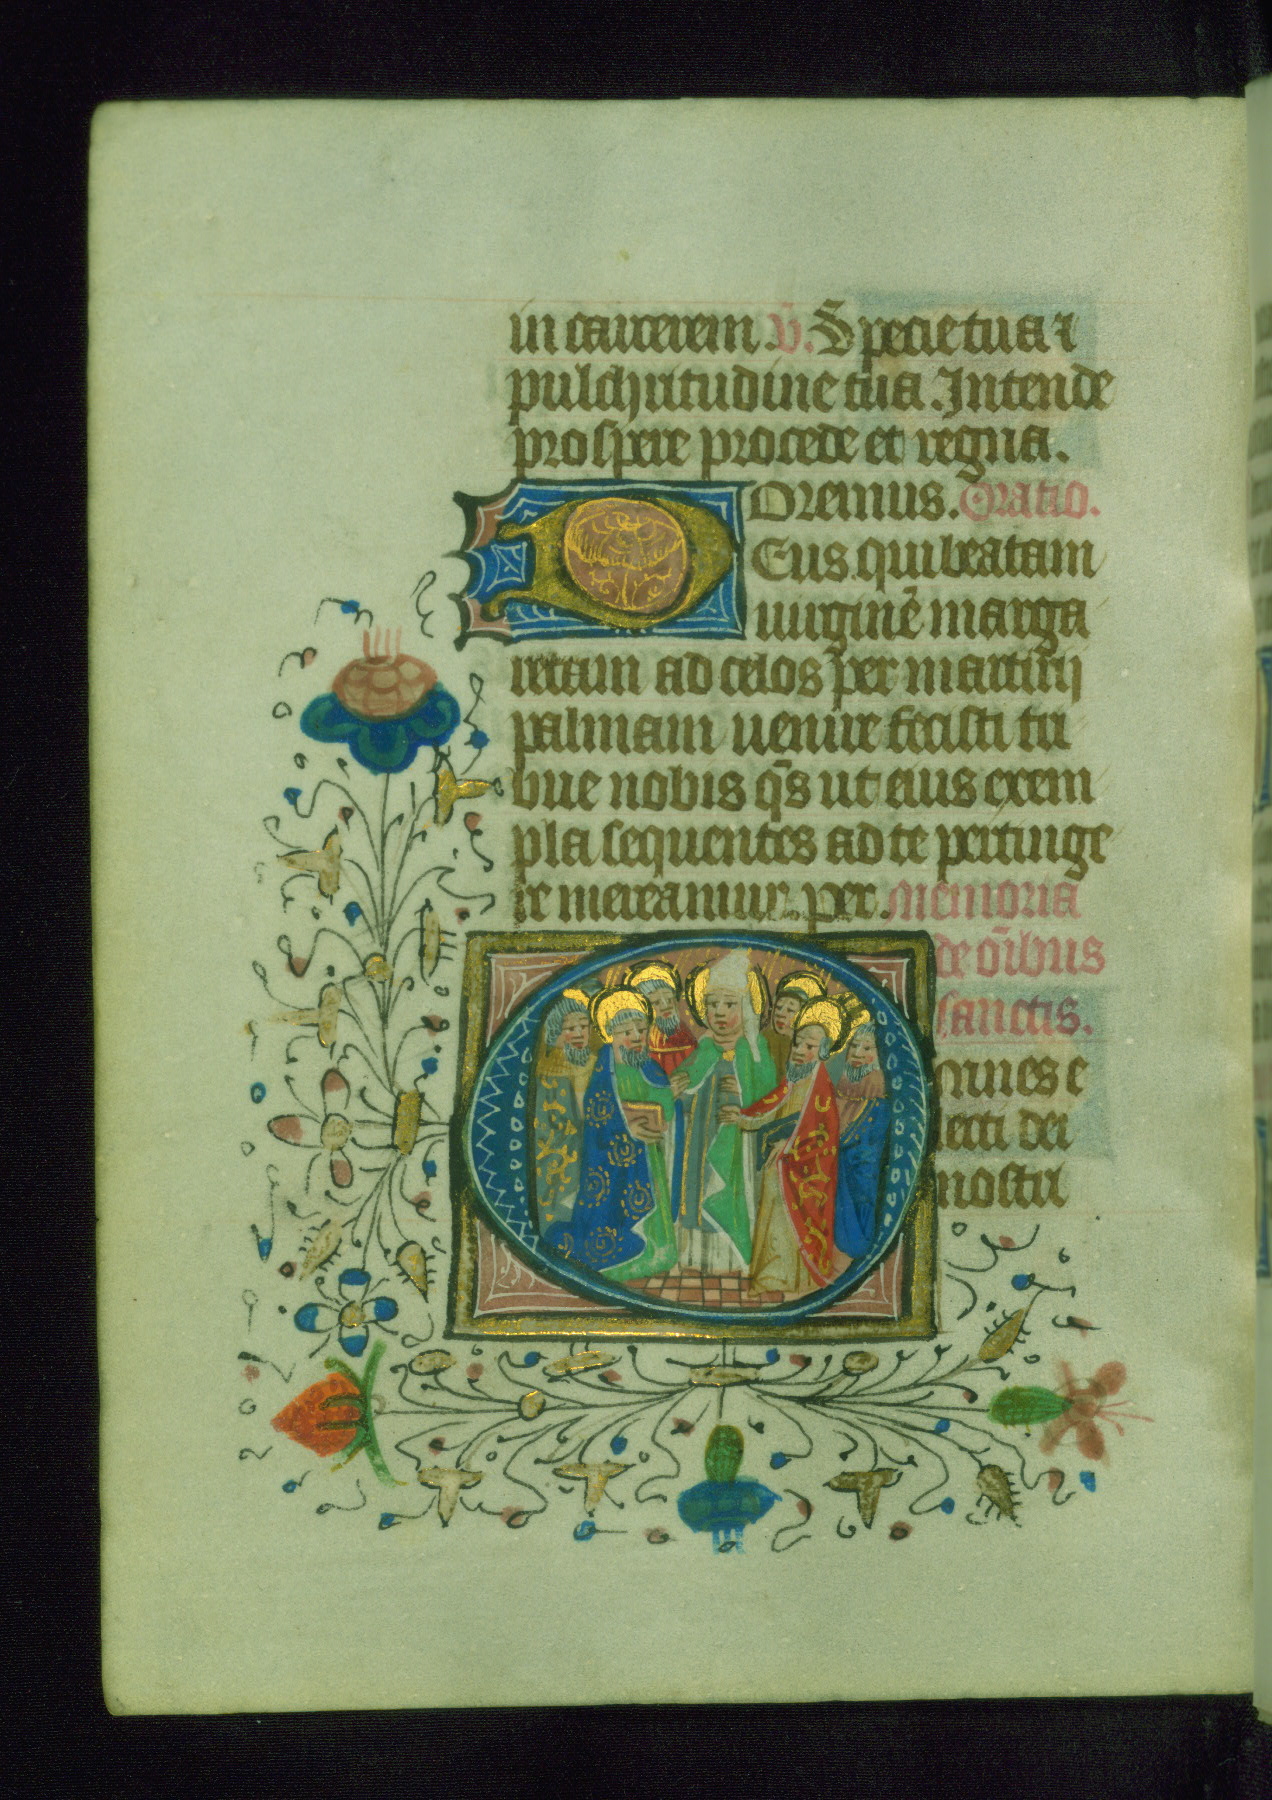 in carcerem. V̄. Specie tua ⁊
pulchritudine tua. Intende
prospere procede et regna.
Oremus. Oratio.
Eus qui beatam
uirginē marga
retam ad celos per martirij
palmam uenire fecisti tri
bue nobis qs̄ ut eius exem
pla sequentes ad te pertinge
re mereamur. per. Memoria
de oībus
sanctis.
mnes e
lecti dei
nostri